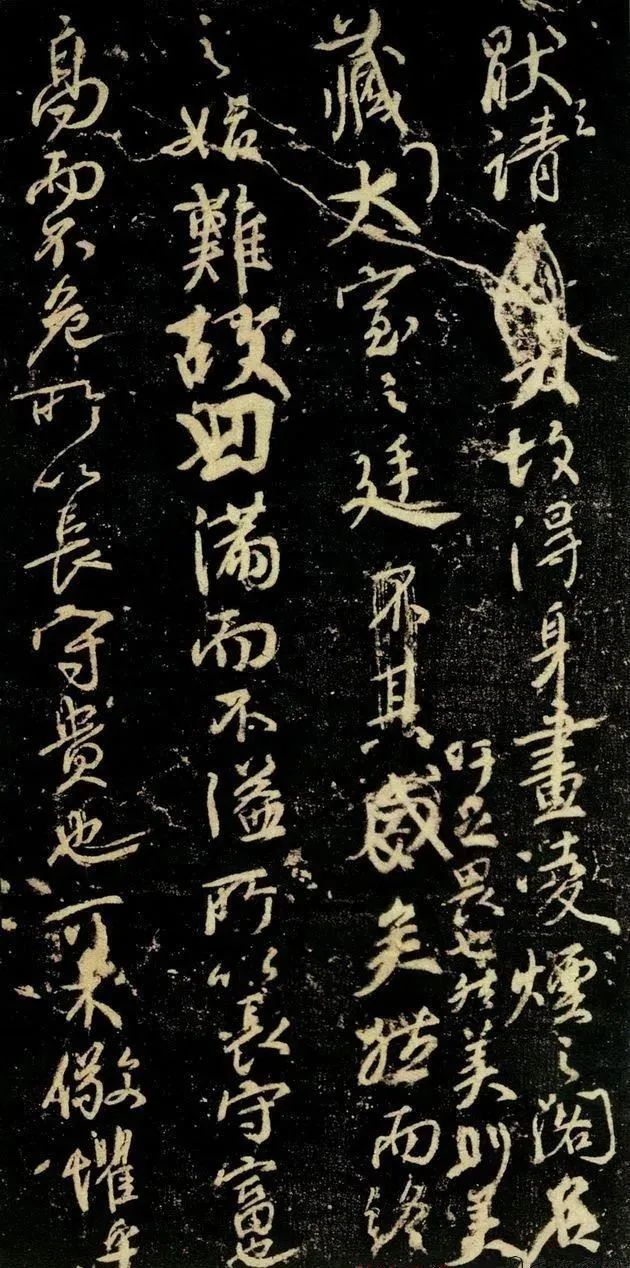 猒之請故得身畫凌煙之閣名
吁足畏也然美則美
藏於太室之廷不其盛矣然而終
之始難故曰滿而不溢所以長守富也
高而不危所以長守貴也可不儆懼乎